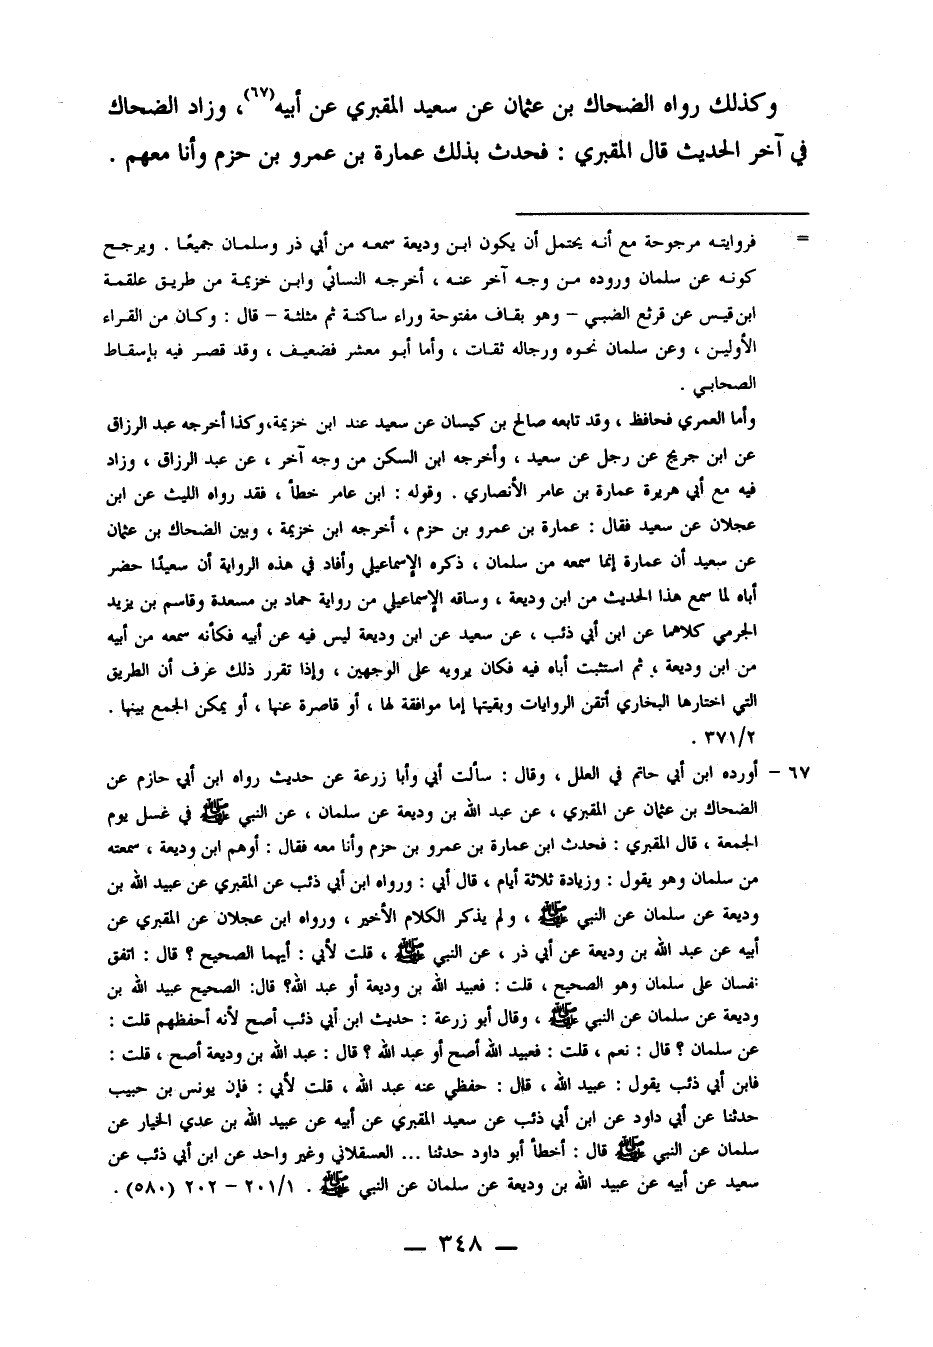 وكذلك رواه الضحاك بن عثمان عن سعيد المقبري عن أبيه(٦٧)، وزاد الضحاك
في آخر الحديث قال المقبري : فحدث بذلك عمارة بن عمرو بن حزم وأنا معهم .
= فروايته مرجوحة مع أنه يحتمل أن يكون ابن وديعة سمعه من أبي ذر وسلمان جميعًا . ويرجح
كونه عن سلمان وروده من وجه آخر عنه ، أخرجه النسائي وابن خزيمة من طريق علقمة
ابن قيس عن قرثع الضبي – وهو بقاف مفتوحة وراء ساكنة ثم مثلثة – قال : وكان من القراء
الأولين ، وعن سلمان نحوه ورجاله ثقات ، وأما أبو معشر فضعيف ، وقد قصر فيه بإسقاط
الصحابي .
وأما العمري فحافظ ، وقد تابعه صالح بن كيسان عن سعيد عند ابن خزيمة،وكذا أخرجه عبد الرزاق
عن ابن جريج عن رجل عن سعيد ، وأخرجه ابن السكن من وجه آخر ، عن عبد الرزاق ، وزاد
فيه مع أبي هريرة عمارة بن عامر الأنصاري . وقوله : ابن عامر خطأ ، فقد رواه الليث عن ابن
عجلان عن سعيد فقال : عمارة بن عمرو بن حزم ، أخرجه ابن خزيمة ، وبين الضحاك بن عثمان
عن سعيد أن عمارة إنما سمعه من سلمان ، ذكره الإسماعيلي وأفاد في هذه الرواية أن سعيدًا حضر
أباه لما سمع هذا الحديث من ابن وديعة ، وساقه الإسماعيلي من رواية حماد بن مسعدة وقاسم بن يزيد
الجرمي كلاهما عن ابن أبي ذئب ، عن سعيد عن ابن وديعة ليس فيه عن أبيه فكأنه سمعه من أبيه
من ابن وديعة ، ثم استثبت أباه فيه فكان يرويه على الوجهين ، وإذا تقرر ذلك عرف أن الطريق
التي اختارها البخاري أتقن الروايات وبقيتها إما موافقة لها ، أو قاصرة عنها ، أو يمكن الجمع بينها .
٣٧١/٢ .
٦٧ – أورده ابن أبي حاتم في العلل ، وقال : سألت أبي وأبا زرعة عن حديث رواه ابن أبي حازم عن
الضحاك بن عثمان عن المقبري ، عن عبد الله بن وديعة عن سلمان ، عن النبي ﷺ في غسل يوم
الجمعة ، قال المقبري : فحدث ابن عمارة بن عمرو بن حزم وأنا معه فقال : أوهم ابن وديعة ، سمعته
من سلمان وهو يقول : وزيادة ثلاثة أيام ، قال أبي : ورواه ابن أبي ذئب عن المقبري عن عبيد الله بن
وديعة عن سلمان عن النبي ﷺ ، ولم يذكر الكلام الأخير ، ورواه ابن عجلان عن المقبري عن
أبيه عن عبد الله بن وديعة عن أبي ذر ، عن النبي ﷺ ، قلت لأبي : أيهما الصحيح ؟ قال : اتفق
نفسان على سلمان وهو الصحيح ، قلت : فعبيد الله بن وديعة أو عبد الله؟ قال: الصحيح عبيد الله بن
وديعة عن سلمان عن النبي ﷺ ، وقال أبو زرعة : حديث ابن أبي ذئب أصح لأنه أحفظهم قلت :
عن سلمان ؟ قال : نعم ، قلت : فعبيد الله أصح أو عبد الله ؟ قال : عبد الله بن وديعة أصح ، قلت :
فابن أبي ذئب يقول : عبيد الله ، قال : حفظي عنه عبد الله ، قلت لأبي : فإن يونس بن حبيب
حدثنا عن أبي داود عن ابن أبي ذئب عن سعيد المقبري عن أبيه عن عبيد الله بن عدي الخيار عن
سلمان عن النبي ﷺ قال : أخطأ أبو داود حدثنا ... العسقلاني وغير واحد عن ابن أبي ذئب عن
سعيد عن أبيه عن عبيد الله بن وديعة عن سلمان عن النبي ﷺ . ٢٠١/١ – ٢٠٢ (٥٨٠) .
— ٣٤٨ —